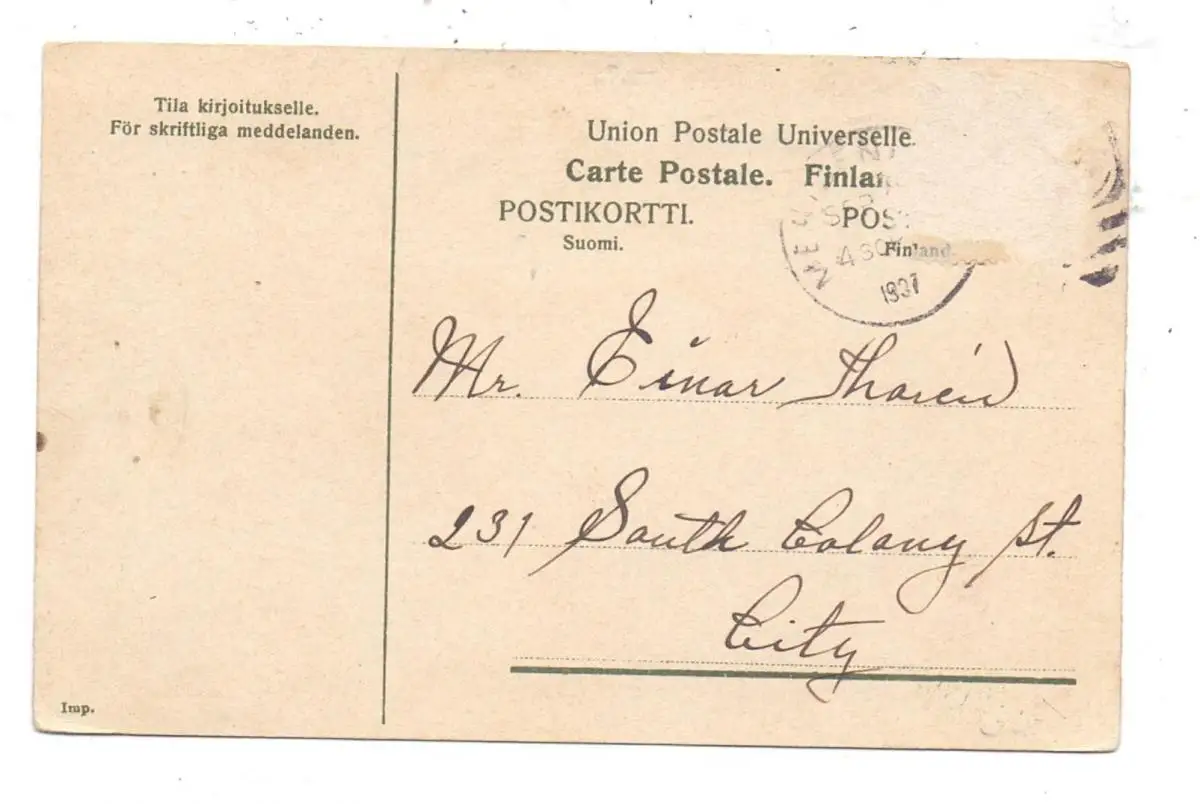 Tila kirjoitukselle.
För skriftliga meddelanden.
Union Postale Universelle.
Carte Postale. Finlan
POSTIKORTTI. POST
Suomi. Finland
SEP
4 30
1907
Mr. Einar Thorén
231 South Colony St.
City
Imp.